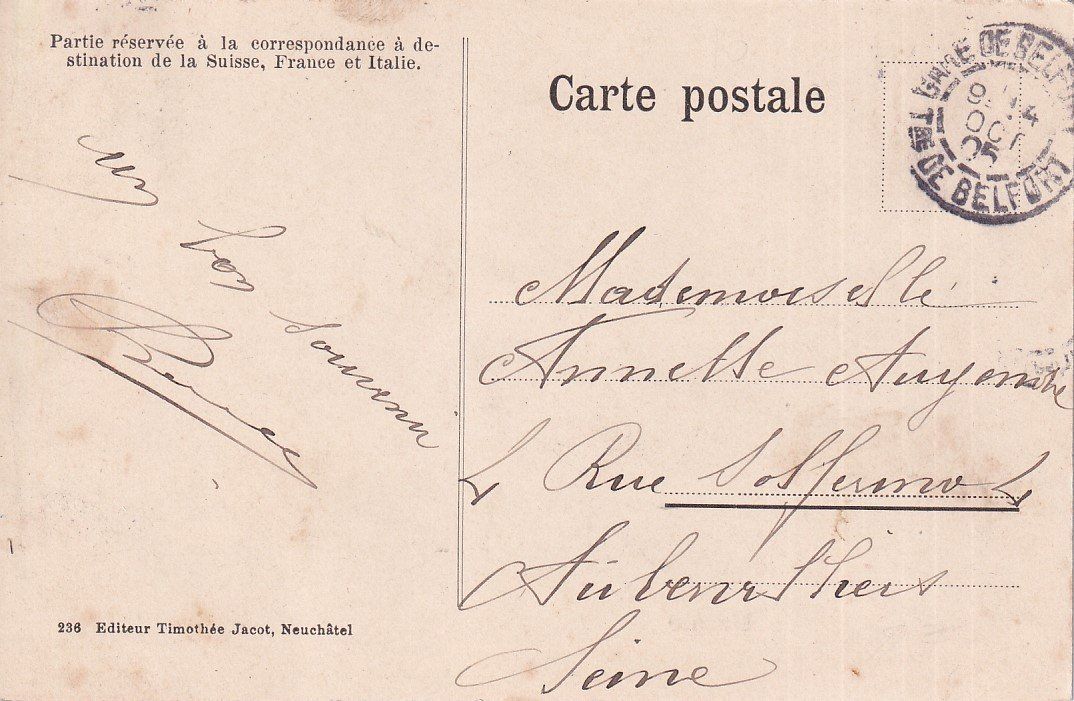 Partie réservée à la correspondance à de-
stination de la Suisse, France et Italie.
Carte postale
GARE DE BELFORT
9
14
OCT
05
TRE DE BELFORT
un
bon
souvenir
Mademoiselle
Annette
4 Rue Solferino 4
Aubervilliers
Seine
236 Editeur Timothée Jacot, Neuchâtel